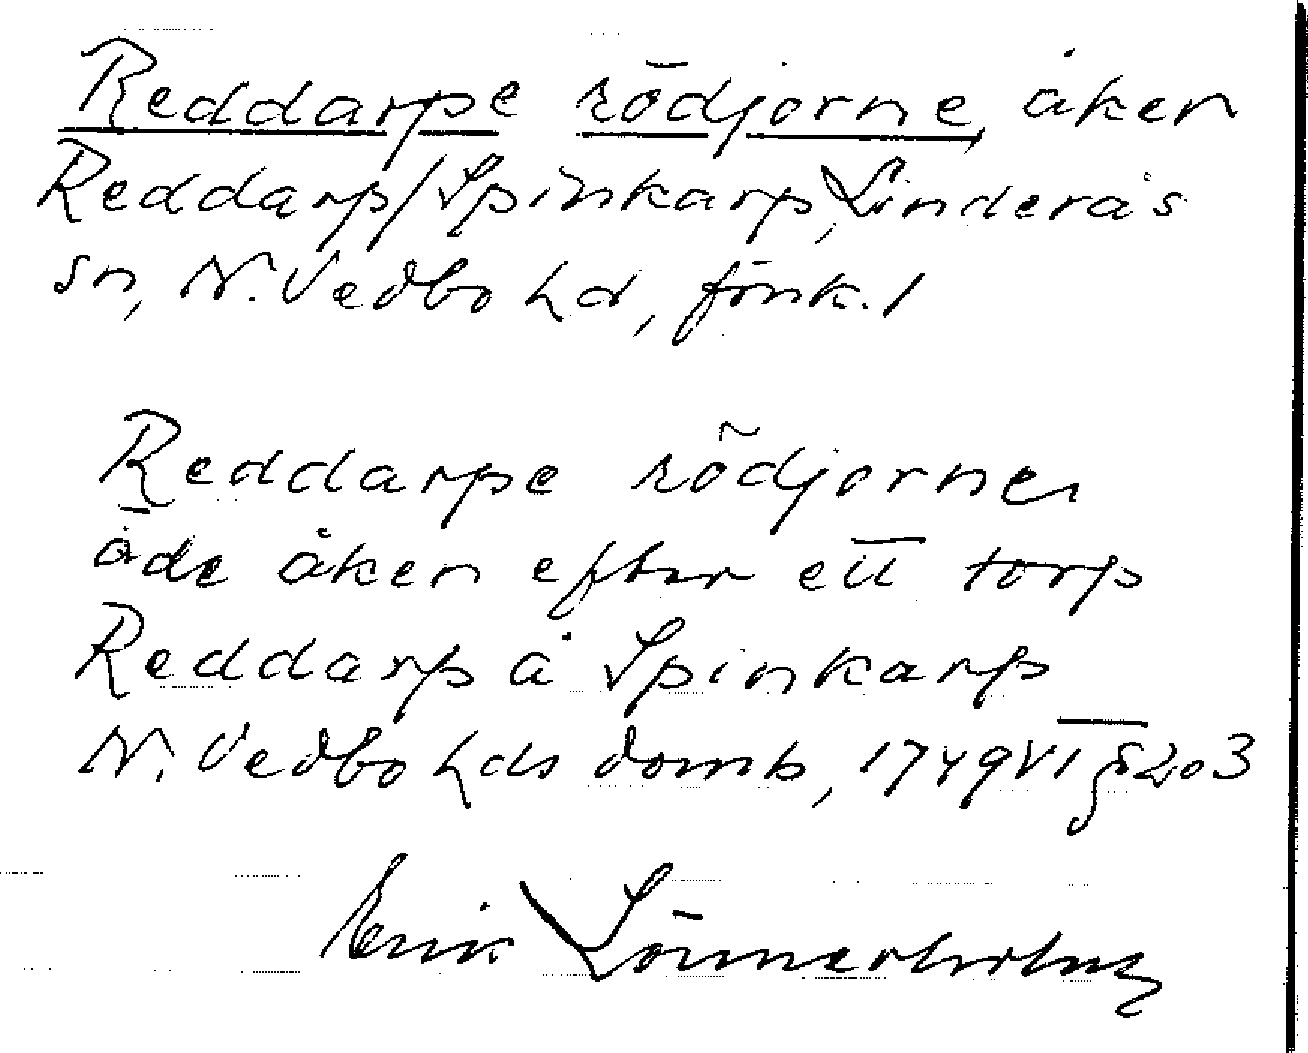 Reddarpe rödjorne, åker
Reddarp/Spinkarp, Linderås
sn, N. Vedbo hd, förk. 1
Reddarpe rödjorne
öde åker efter ett torp
Reddarp å Spinkarp
N. Vedbo hds domb, 1749 VI § 203
Erik Lönnerholm